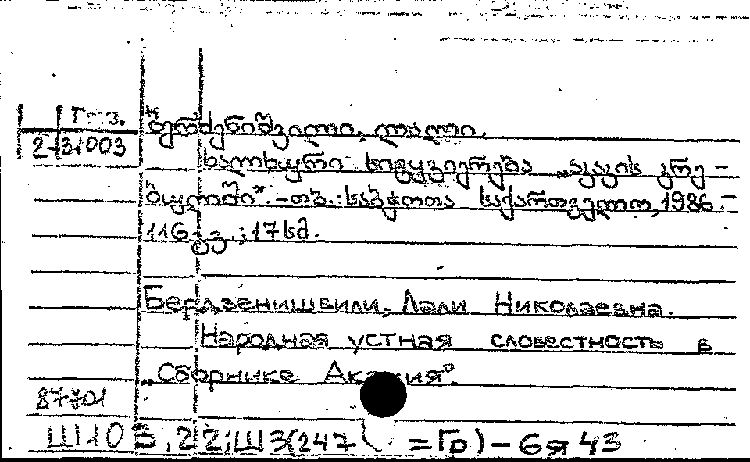 Груз.
2-31003
ბერძენიშვილი, ლალი.
ხალხური სიტყვიერება „აკაკის კრე-
ბულში“. - თბ.: საბჭოთა საქართველო, 1986. -
116 გვ.; 17 სმ.
Бердзенишвили, Лали Николаевна.
Народная устная словестность в
„Сборнике Акакия“.
87701
Ш10 3,22; Ш3(247 =Гр)-6я43